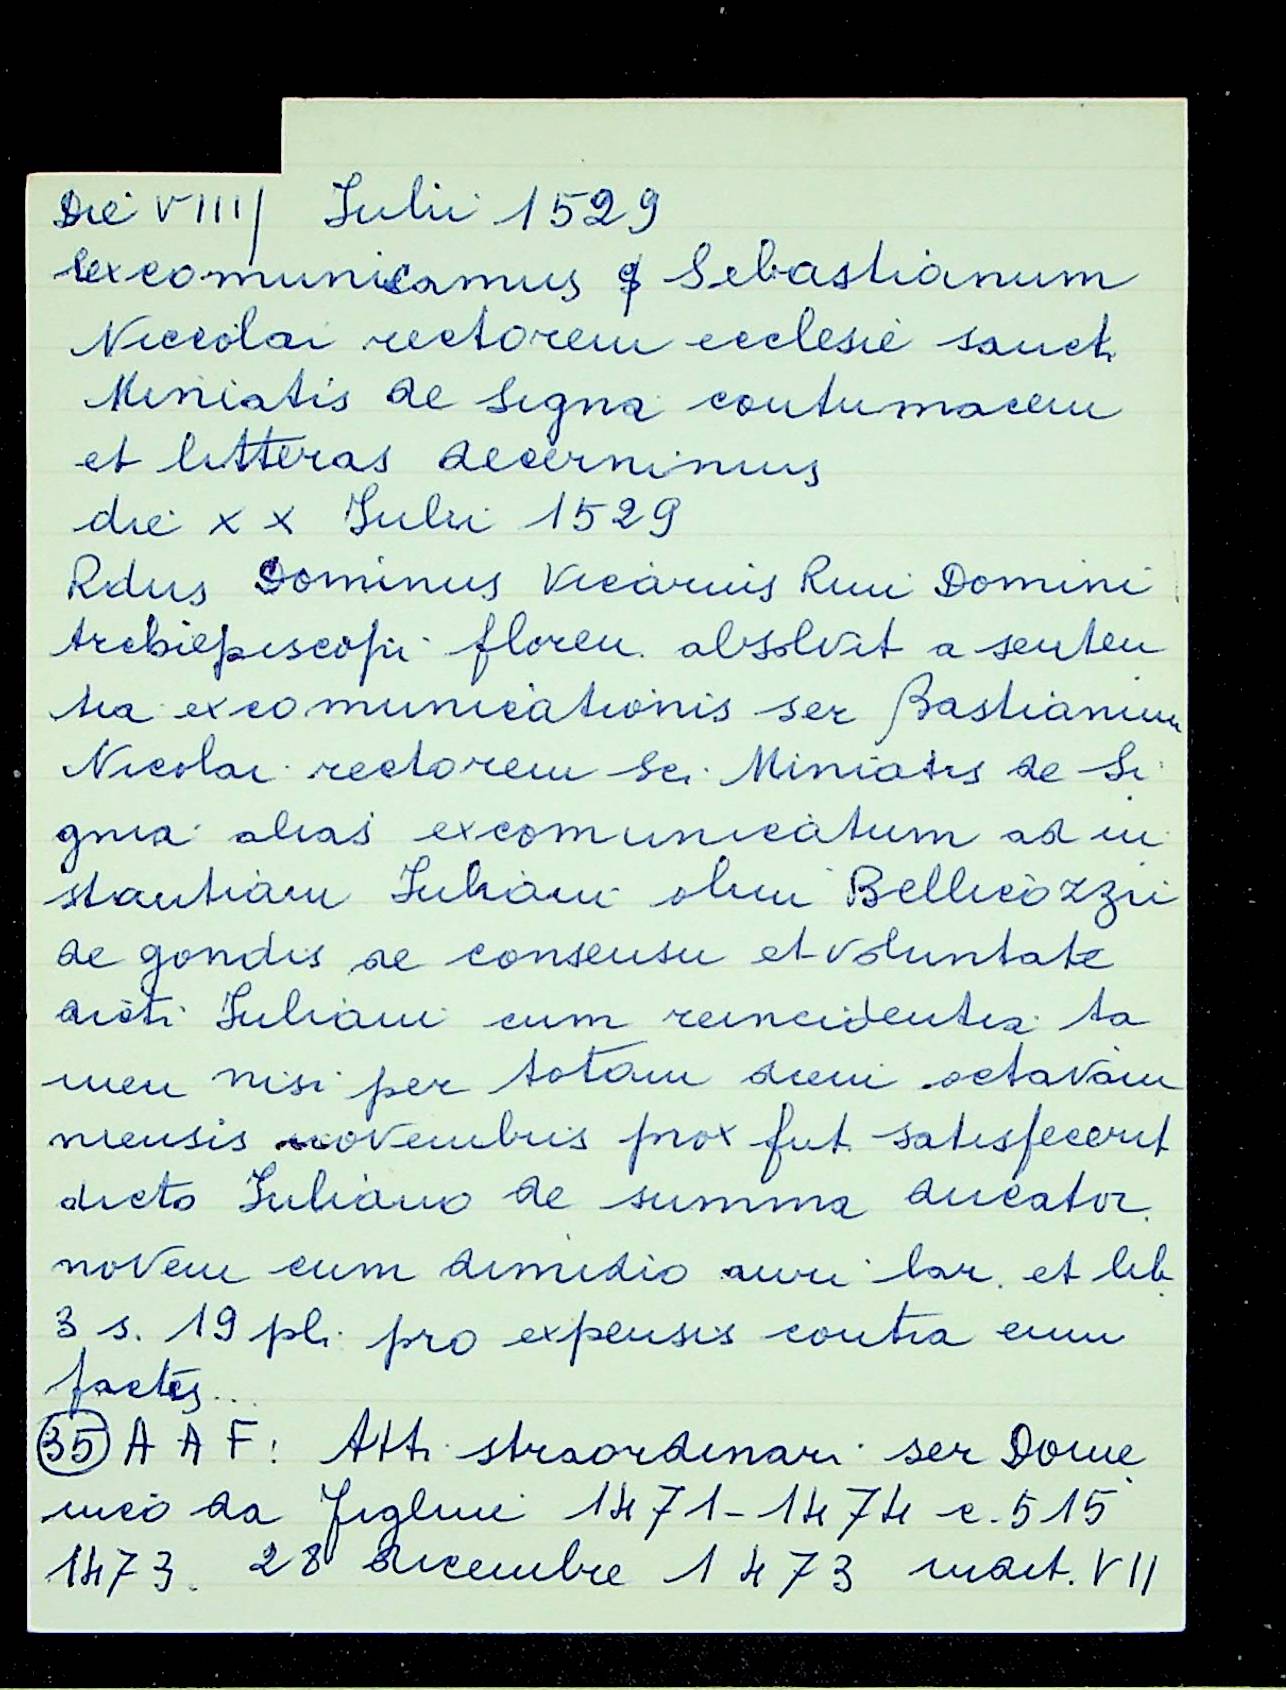 Die VIIII Iulii 1529
excomunicamus S Sebastianum
Niccolai rectorem ecclesie sancti
Miniatis de Signa contumacem
et litteras decernimus
die xx Iulii 1529
Rdus Dominus Vicarius Rmi Domini
Archiepiscopi floren. absolvit a senten
tia excomunicationis ser Bastianum
Nicolai rectorem Sci. Miniatis de Si
gnia alias excomunicatum ad in
stantiam Iuliani olim Bellicozzii
de gondis de consensu et voluntate
dicti Iuliani cum reincidentia ta
men nisi per totam diem octavam
mensis novembris prox fut. satisfecerit
dicto Iuliano de summa ducator.
novem cum dimidio auri lar. et lib.
3 s. 19 pli. pro expensis contra eum
factis...
35 A A F: Atti straordinari ser Dome
nico da Figline 1471-1474 c. 515
1473. 28 dicembre 1473 indict. VII